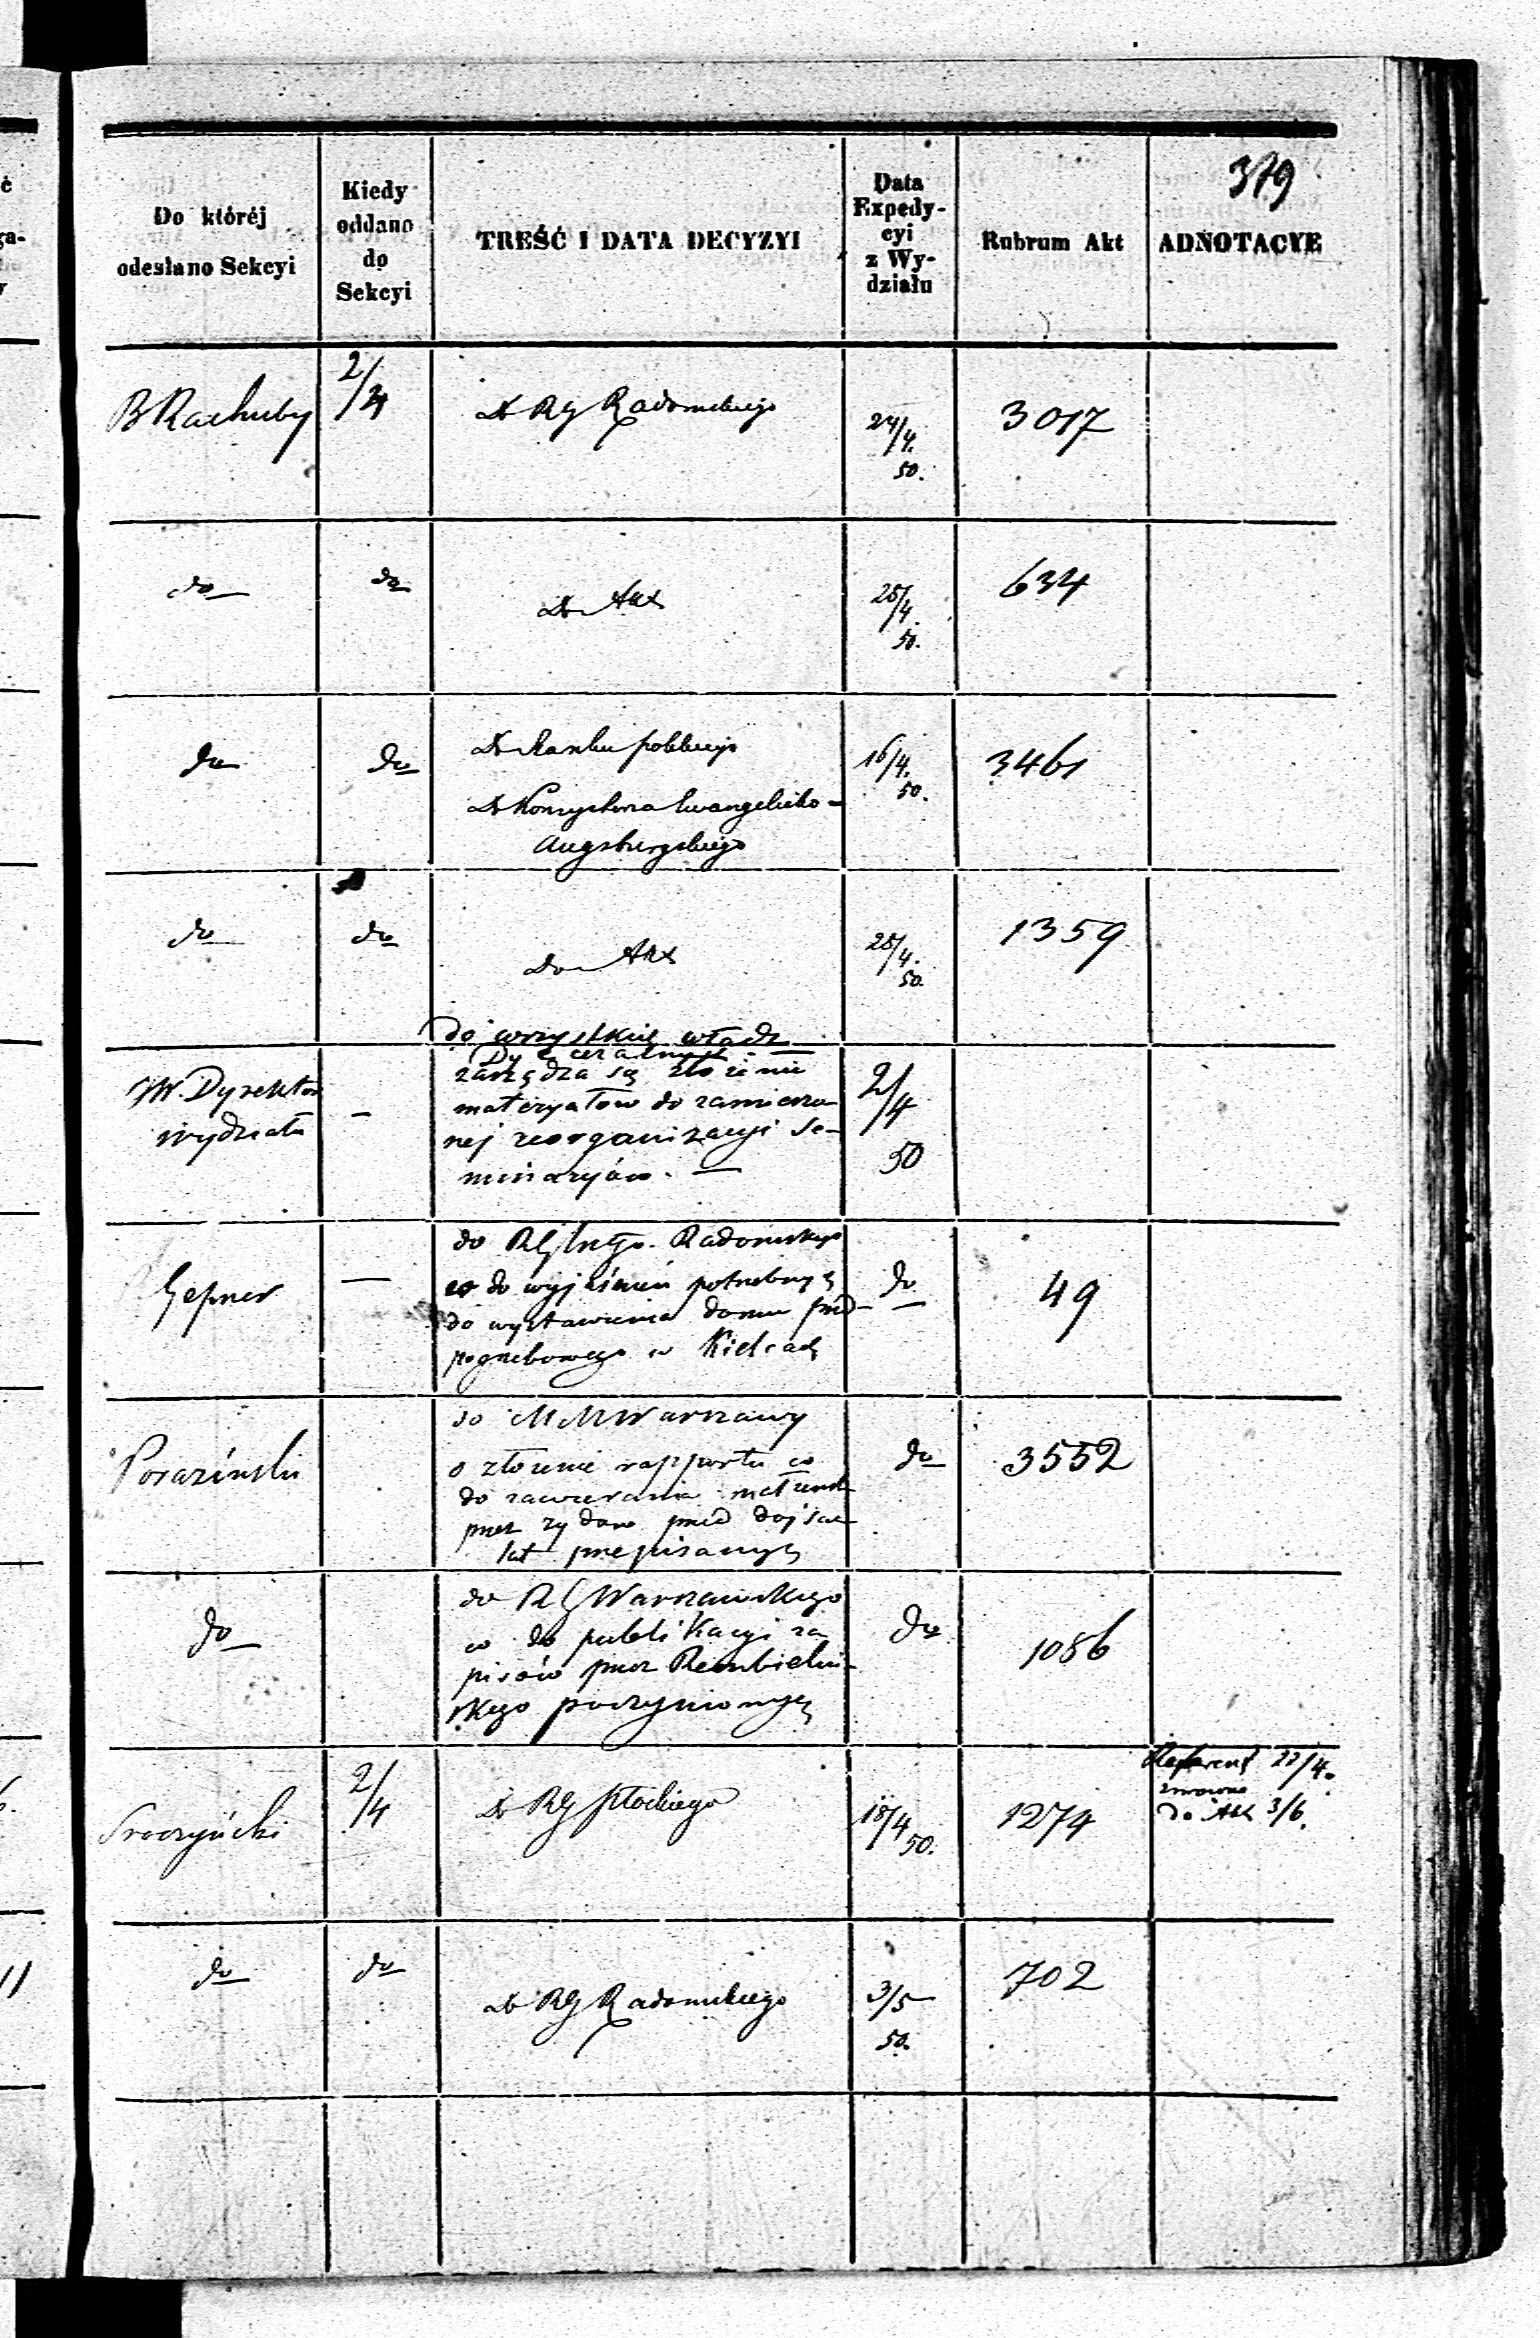 379
Do któréj
odesłano Sekcyi
Kiedy
oddano
do
Sekcyi
TREŚĆ I DATA DECYZYI
Data
Expedy-
cyi
z Wy-
działu
Rubrum Akt
ADNOTACYE
B Rachuby
2/4
Do RG Radomskiego
24/4.
50.
3017
do
do
Do Akt
25/4.
50.
634
do
do
Do Banku polskiego
Do Konsystorza Ewangelicko-
Augsburgskiego
16/4.
50.
3461
do
do
Do Akt
25/4.
50.
1359
JW. Dyrektor
wydziału
—
do wszystkich władz
Dyecezalnych
zarządza się złożenie
materyałów do zamierzo
nej reorganizacyi Se-
minaryów. —
2/4
50
Gepner
—
do RG Radomskiego
co do wyjaśnień potrzebnych
do wystawienia domu przed-
pogrzebowego w Kielcach
do
49
Poraziński
do MM Warszawy
o złożenie rapportu co
do zawierania małżeństw
przez żydów przed dojściem
lat przepisanych
do
3552
do
do RG Warszawskiego
co do publikacyi za
pisów przez Rembieliń-
skiego poczynionych
do
1086
Sroczyński
2/4
Do RG Płockiego
18/4
50.
1274
Referent 22/4.
do Akt 3/6.
do
do
Do RG Radomskiego
3/5
50.
702